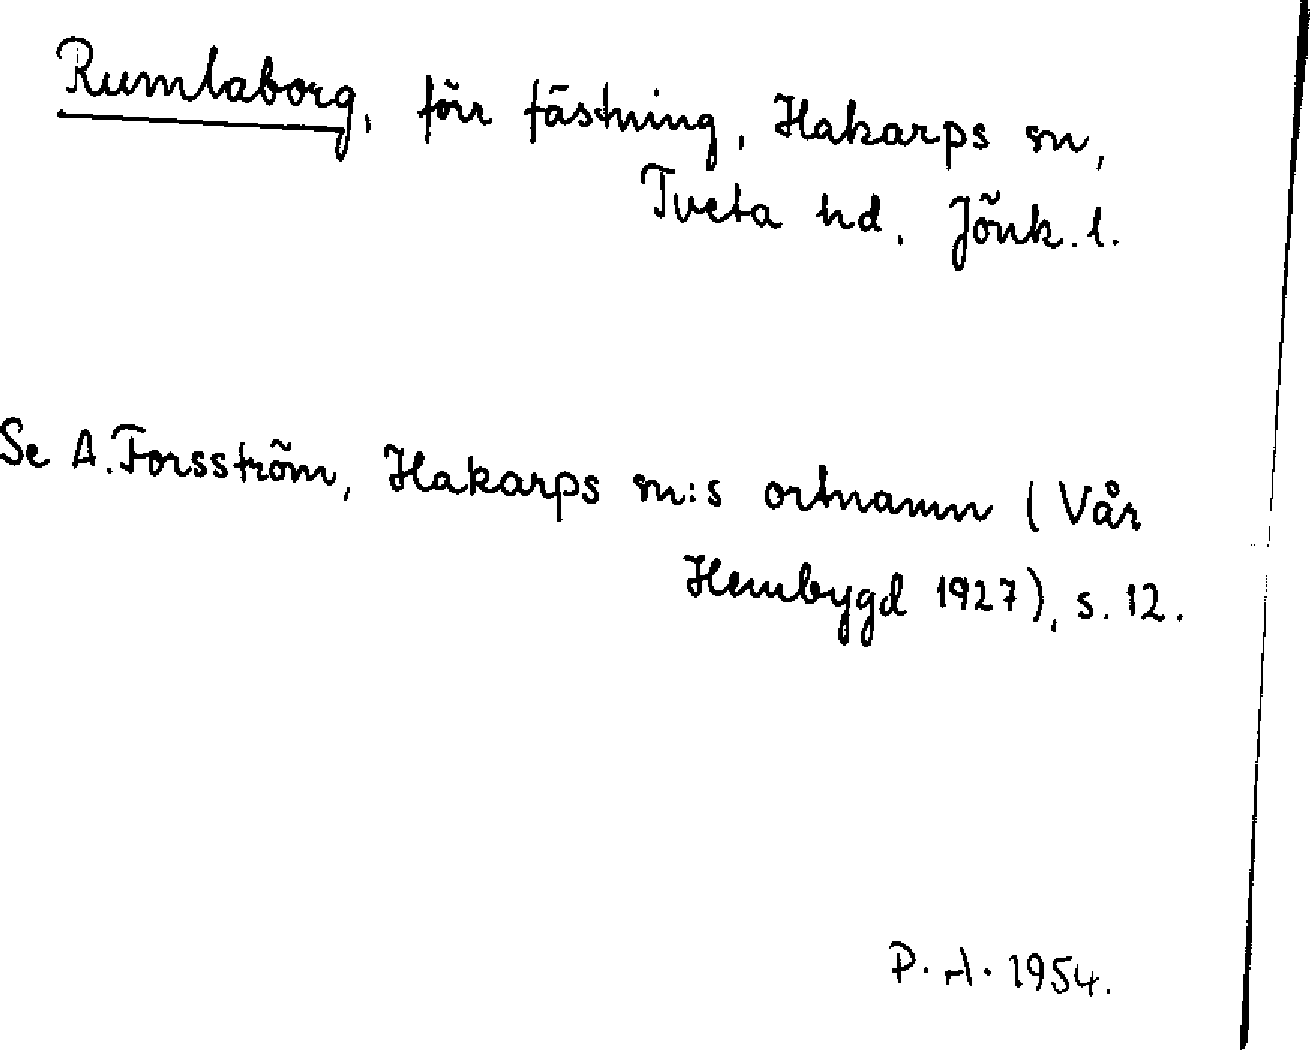 Rumlaborg, förr fästning, Hakarps sn,
Tveta hd. Jönk. l.
Se A. Forsström, Hakarps sn:s ortnamn (Vår
Hembygd 1927), s. 12.
P. A. 1954.